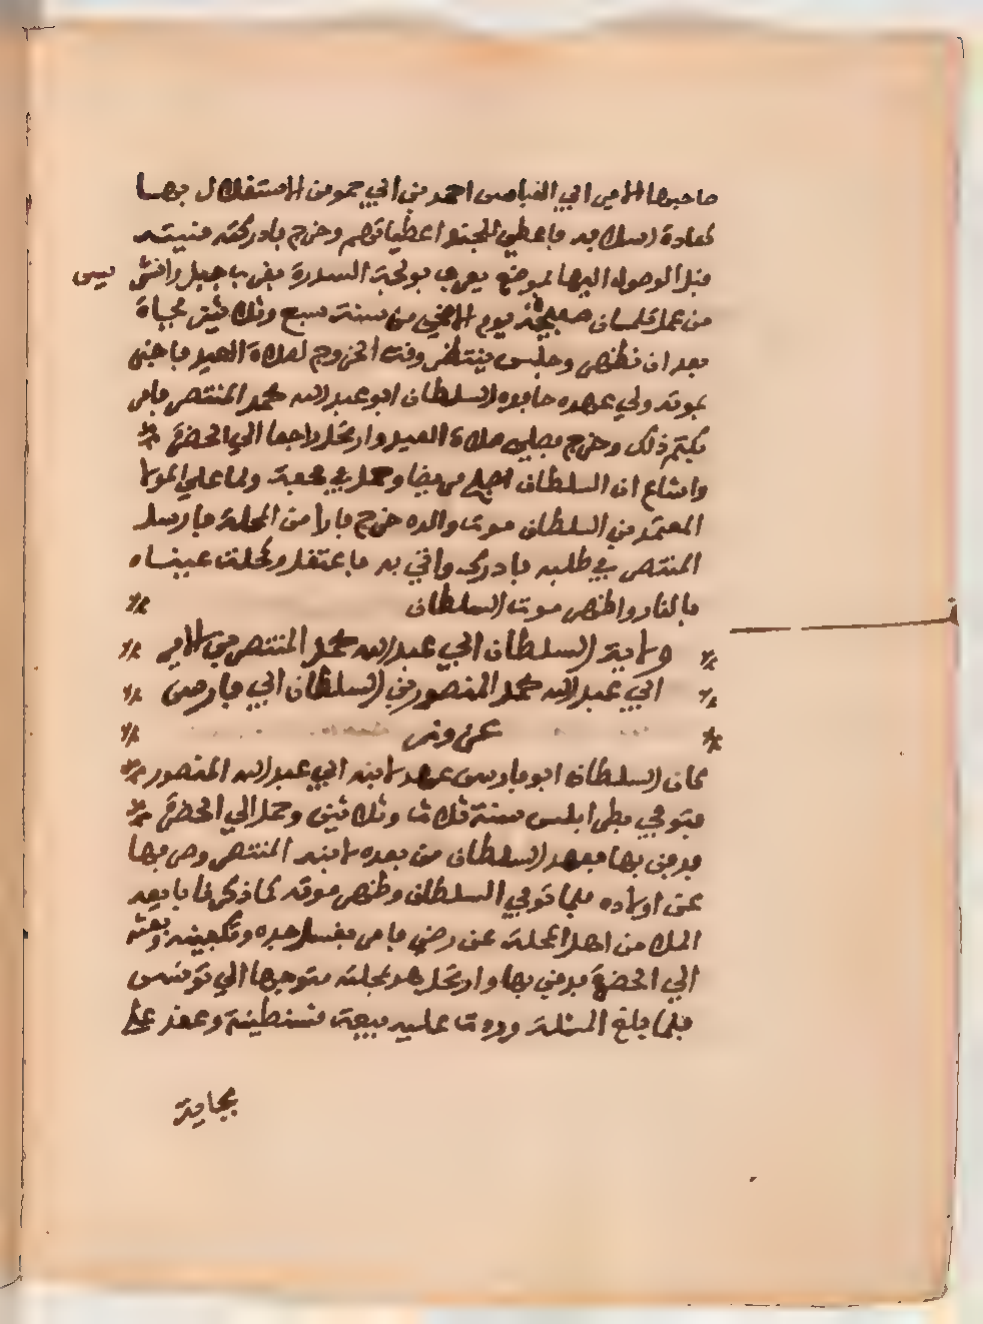 صاحبها الامير ابي العباس احمد بن ابي حمو من الاستقلال بها
كعادة اسلافه فاعطى الجند اعطياتهم وخرج فادركته منيته
قبل الوصول اليها بموضع يعرف بولجة السدرة بقرب جبل وانشريس
من عمل تلمسان صبيحة يوم الاضحى من سنة سبع وثلاثين فجأة
بعد ان تطهر وجلس ينتظر وقت الخروج لصلاة العيد فاخبر
بموته ولي عهده حافده السلطان ابو عبد الله محمد المنتصر فامر
بكتم ذلك وخرج فصلى صلاة العيد وارتحل راجعا الى الحضرة
واشاع ان السلطان اصبح مريضا وحمل في محفة ولما علم المولا
المعتمد بن السلطان موت والده خرج فارا من المحلة فارسل
المنتصر في طلبه فادرك واتي به فاعتقل وكحلت عيناه
بالنار واظهر موت السلطان
ولاية السلطان ابي عبد الله محمد المنتصر بن الامير
ابي عبد الله محمد المنصور بن السلطان ابي فارس
عزوز
كان السلطان ابو فارس عهد لابنه ابي عبد الله المنصور
فتوفي بطرابلس سنة ثلاث وثلاثين وحمل الى الحضرة
فدفن بها فعهد السلطان من بعده لابنه المنتصر وصرفها
عن اولاده فلما توفي السلطان وظهر موته كما ذكرنا بايعه
الملا من اهل المحلة عن رضى فامر بغسل جده وتكفينه وبعثه
الى الحضرة فدفن بها وارتحل هو بمحلته متوجها الى تونس
فلما بلغ المسلة وردت عليه بيعة قسنطينة وعقد على
بجاية